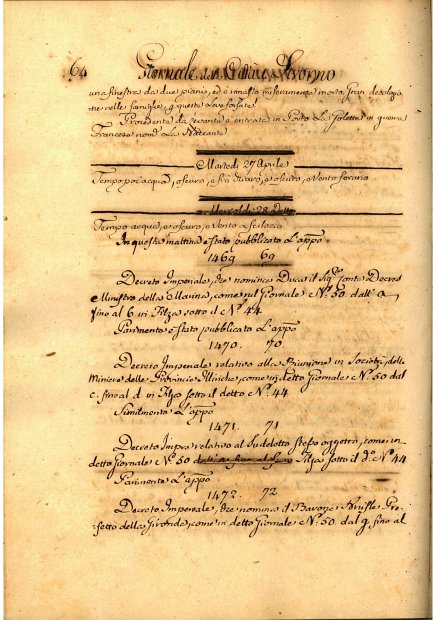 64 Giornale del Livorno
una finestra da due piani, ed è rimasta miseramente morta. Gran desolazio
ne nelle famiglie, questa
Procedente da Levante è entrata in Porto La Goletta in guerra
Francese nom.
Martedì 27 Aprile
Tempo poc'acqua, oscuro, e oscuro, e Vento
28 Detto
Tempo acqua, e oscuro, e Vento a scilocco
In questa mattina è stato pubblicato L'appo
1469 69
Decreto Imperiale, che nomina Duca il Sigr Conte Decres
Ministro della Marina, come nel Giornale N.º 50 dall' a
fino al 6. in Filza sotto il N.º 44
Parimente è stato pubblicato L'appo
1470. 70
Decreto Imperiale relativo alla Riunione in Società, delle
Miniere delle Provincie Illiriche, come in detto Giornale N.º 50 dal
c. fino al d. in Filza sotto il detto N.º 44
Similmente L'appo
1471. 71
Decreto Impre relativo al sudetto stesso oggetto, come in
detto Giornale N.º 50 Filza sotto il dº N.º 44
Parimente L'appo
1472. 72
Decreto Imperiale, che nomina il Barone Pre-
fetto della Gironda, come in detto Giornale N.º 50. dal g. fino al